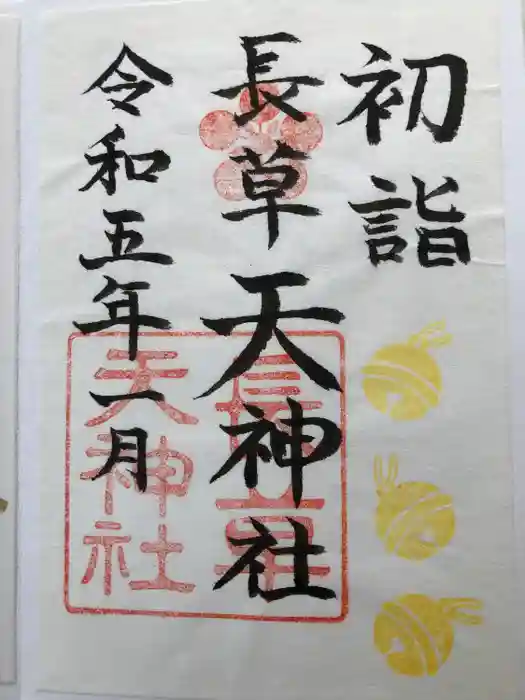 初詣
長草天神社
令和五年一月
長草
天神社